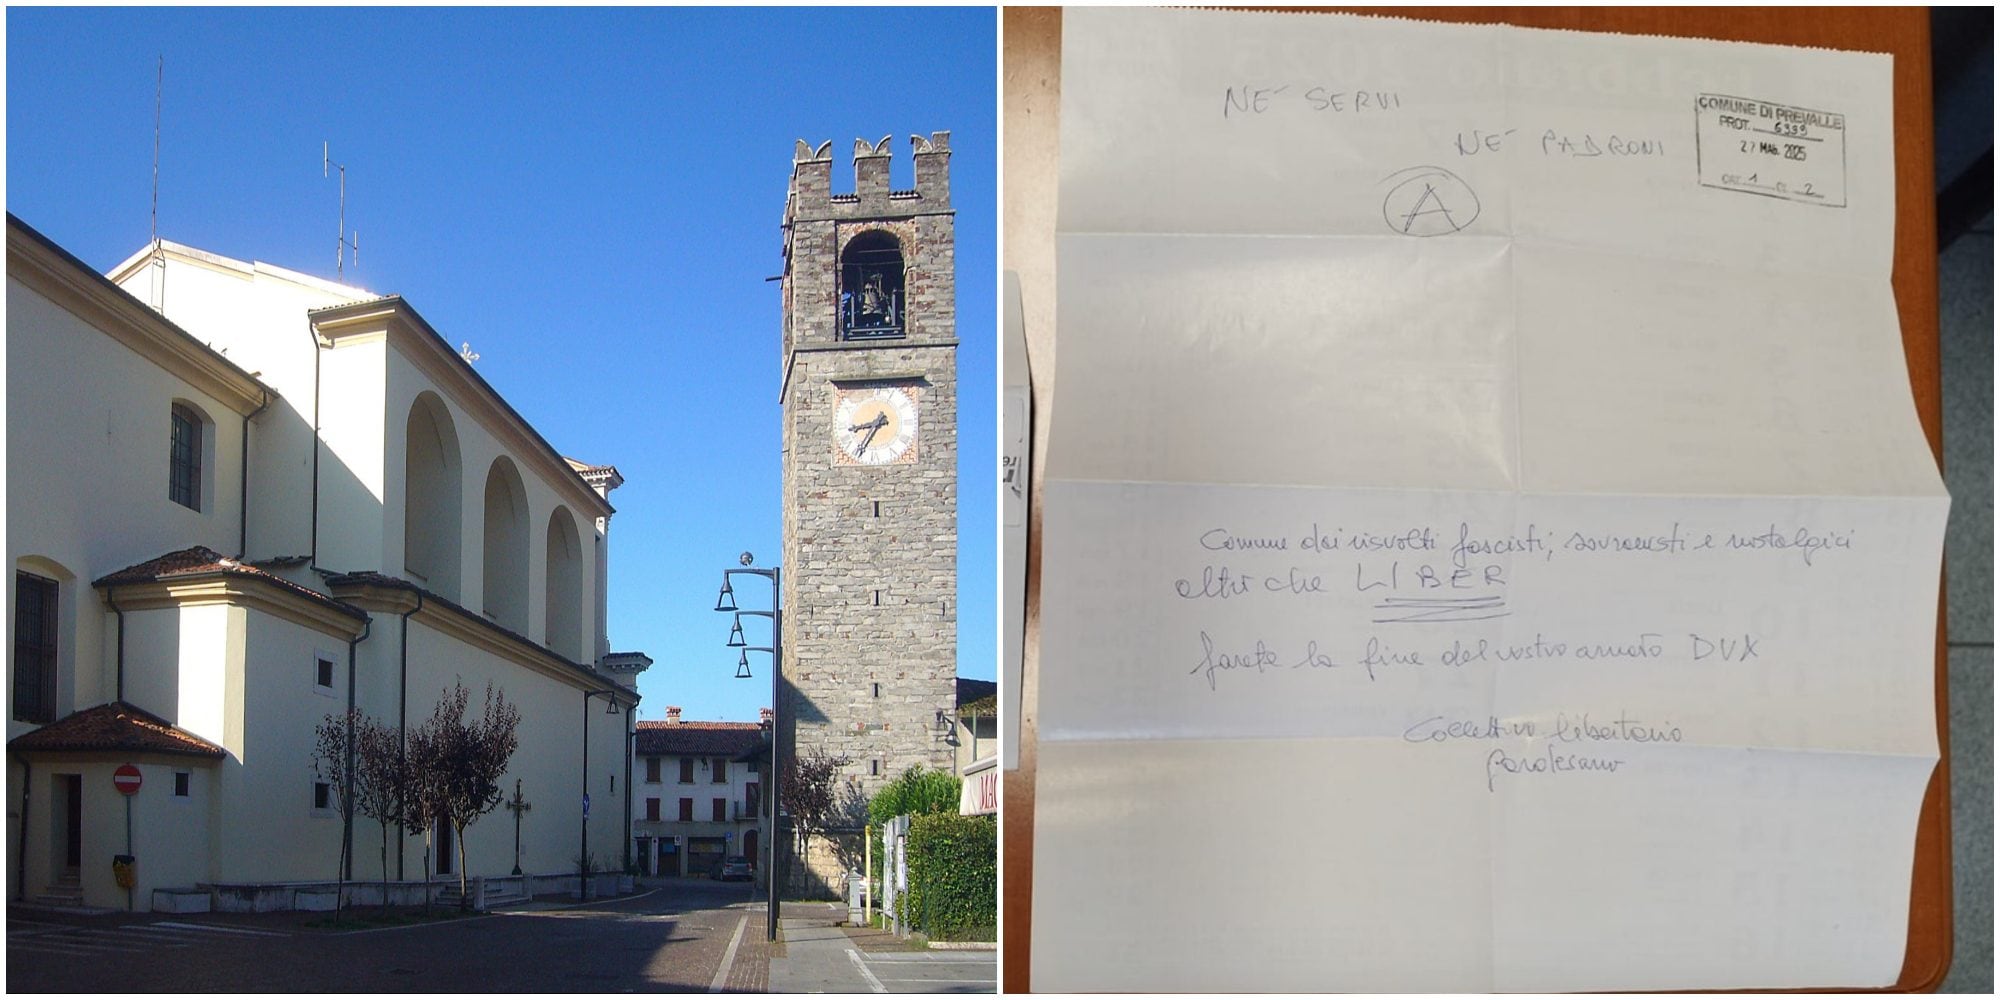 NE' SERVI
NE' PADRONI
A
COMUNE DI PREVALLE
PROT. 6399
27 MAG. 2025
CAT. 1 CL. 2
Comune dai risvolti fascisti, sovranisti e nostalgici
altri che LIBER
farete la fine del vostro amato DUX
Collettivo libertario
gardesano
MAC